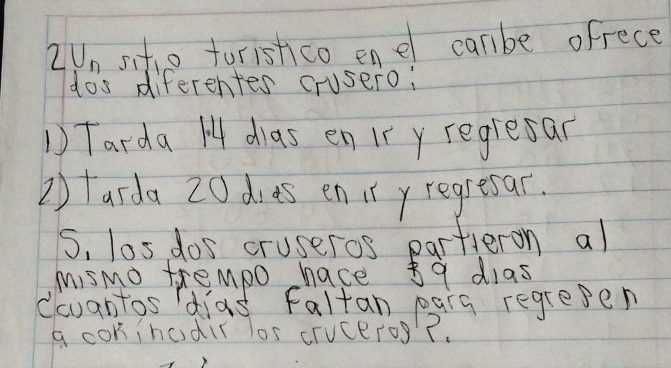 2 Un sitio turistico en el caribe ofrece
dos diferentes crusero:
1) Tarda 14 dias en ir y regresar
2) Tarda 20 dias en ir y regresar.
S. los dos cruseros partieron al
mismo tiempo hace 9 dias
¿cuantos dias Faltan para regresen
a cohincidir los cruceros?.